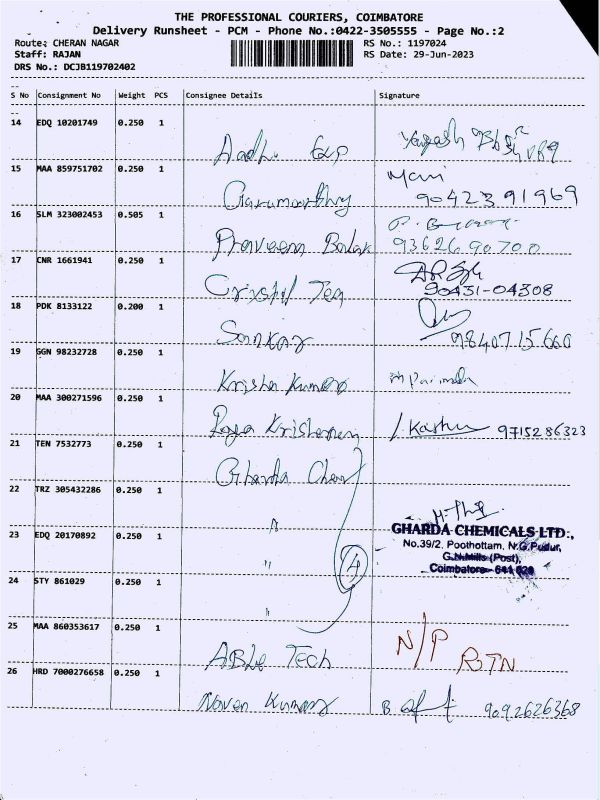 THE PROFESSIONAL COURIERS, COIMBATORE
Delivery Runsheet - PCM - Phone No.:0422-3505555 - Page No.:2
Route: CHERAN NAGAR RS No.: 1197024
Staff: RAJAN RS Date: 29-Jun-2023
DRS No.: DCJB119702402
S No Consignment No Weight PCS Consignee Details Signature
14 EDQ 10201749 0.250 1
Aadhi Exp
15 MAA 859751702 0.250 1 Mani
90423 91969
16 SLM 323002453 0.505 1
Praveen 93626 90700
17 CNR 1661941 0.250 1
Crystal Teq 90431-04308
18 PDK 8133122 0.200 1
Sankar 98407 15660
19 GGN 98232728 0.250 1
Krishna Kumar
20 MAA 300271596 0.250 1
Raja Krishnan 9715286323
21 TEN 7532773 0.250 1
Gharda Chem
22 TRZ 305432286 0.250 1
"
GHARDA CHEMICALS LTD.,
23 EDQ 20170892 0.250 1
No.39/2, Poothottam, N.G.Pudur,
" G.N.Mills (Post),
4 Coimbatore - 641 029
24 STY 861029 0.250 1
"
25 MAA 860353617 0.250 1
ABLe Tech N/P RTN
26 HRD 7000276658 0.250 1
Naven Kumar 9092626368